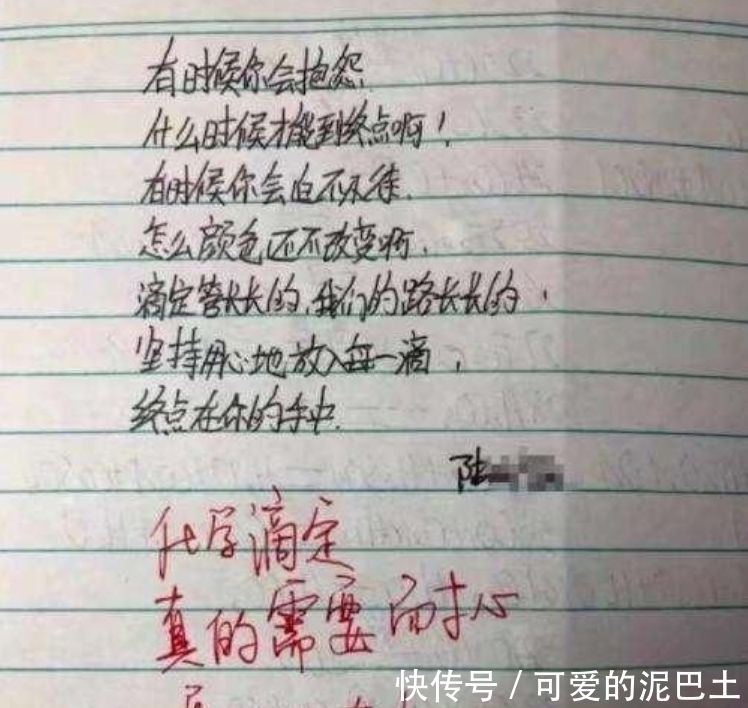 有时候你会抱怨.
什么时候才能到终点啊！
有时候你会迫不及待.
怎么颜色还不改变啊.
滴定管长长的,我们的路长长的,
坚持用心地放入每一滴,
终点在你的手中.
陆
化学滴定
真的需要耐心
快传号/可爱的泥巴土